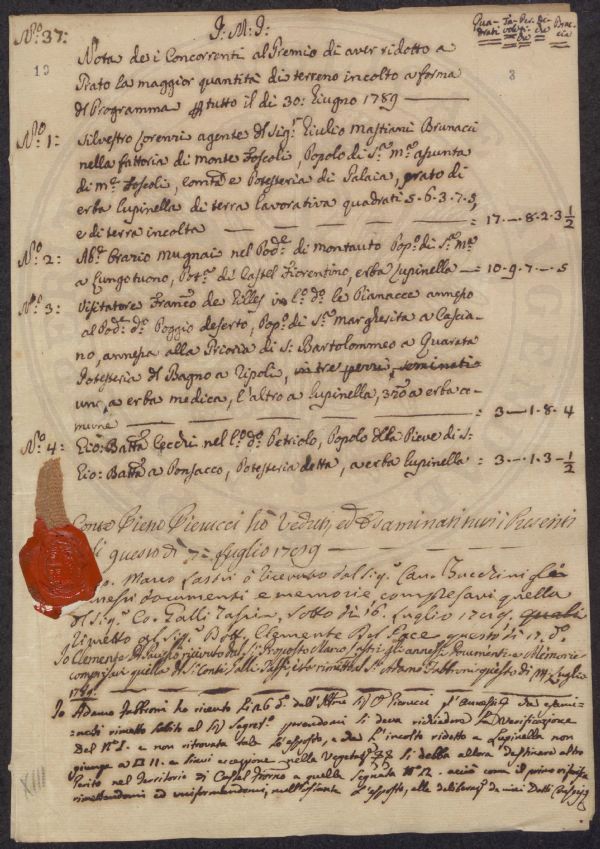 N.º 37:
J: M: J:
Qua- Ta- Per- De- Brac-
drati vole ti- che cia
che
19
8
Nota dei Concorrenti al Premio di aver ridotto a
Prato la maggior quantità di terreno incolto a forma
del Programma tutto il dì 30: Giugno 1789
N.º 1: Silvestro Lorenzi agente del Sig.r Giulio Mastiani Brunacci
nella fattoria di Monte Foscoli, Popolo di S.ta M.a assunta
di M.te Foscoli, Com.tà e Potesteria di Palaia, prato di
erba lupinella di terra lavorativa quadrati 5.6.3.7.5,
e di terra incolta = 17.—.8.2.3 1/2
N.º 2: Ab.e Orazio Mugnai nel Pod.e di Montauto Pop.o di S.ta M.a
a Lungotuono, Pot.a di Castel Fiorentino, erba lupinella — 10.9.7.—.5
N.º 3: Visitatore Franc.o de Gilles in l.o d.o le Pianacce annesso
al Pod.e d.o Poggio deserto, Pop.o di S.ta Margherita a Cascia-
no, annessa alla Prioria di S: Bartolommeo a Quarata
Potesteria del Bagno a Ripoli, in tre pezzi, seminati
uno a erba medica, l'altro a lupinella, 3zo a erba co-
mune = 3—1.8.4
N.º 4: Gio: Batta Cecchi nel l.o d.o Petriolo, Popolo della Pieve di S:
Gio: Batta a Ponsacco, Potesteria detta, a erba lupinella = 3.—.1.3—1/2
Pierucci hò Veduti, ed Esaminati numi Presenti
questo dì 7: Luglio 1789
Marco Lastri ò ricevuto dal Sig.r Cav. gl'
annessi documenti e memorie compresavi quella
del Sig.r Co. Galli Tassi, sotto dì 16. Luglio 1789, quali
rimetto al Sig. Dott. Clemente questo dì 17. d.o
Io Clemente ricevuto dal Sig. Proposto Marco Lastri gli annessi Documenti e Memorie
compresavi quella del Sig. Conte Galli Tassi, e le rimetto al S.r Adamo Fabbroni questo dì Luglio
1789.
Io Adamo Fabbroni ho ricevuto dall' Pierucci
rimetto subito al Sig. Segret.o si deva richiedere la Verificazione
del N.º 1. e non ritrovata tale l'esposto, e che l'incolto ridotto a Lupinella non
giunga a 11. e siavi eccezione nella si debba allora destinare altro
Perito nel territorio di Castel Fiorno a quella segnata N.º 2. acciò come il primo
rimettendomi ed uniformandomi, alle deliberaz. dei miei Dotti
XIII